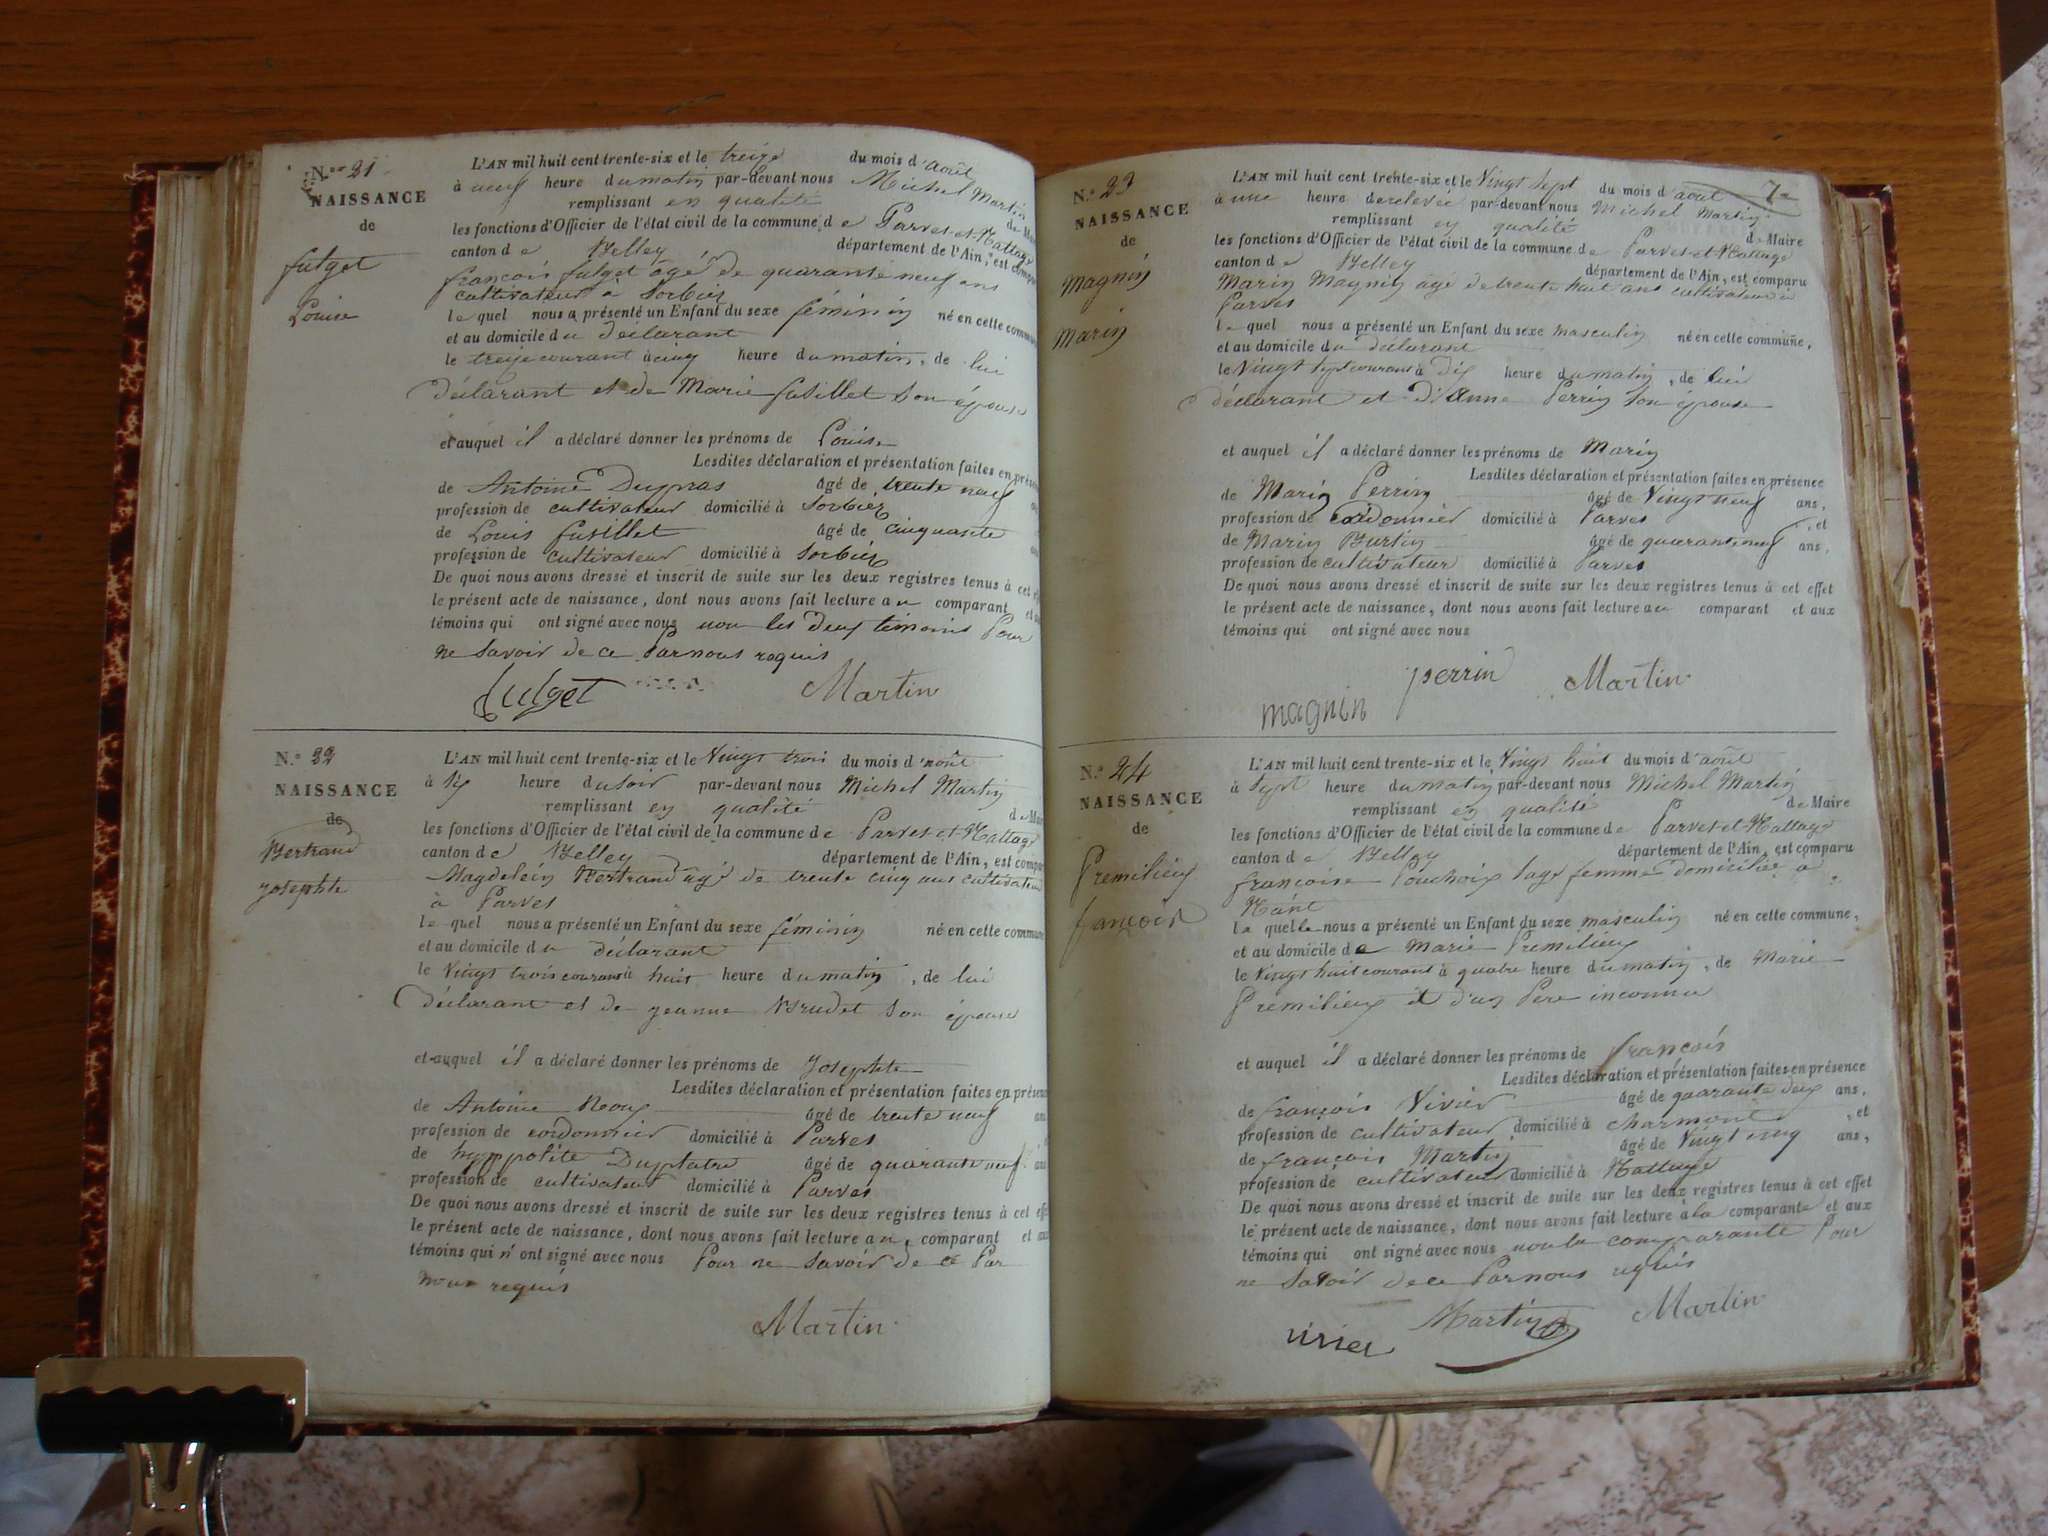 N.º 21
NAISSANCE
de
fulget
Louise
L'AN mil huit cent trente-six et le treize du mois d'août
à neuf heure du matin par-devant nous Michel Martin
remplissant en qualité de Mai
les fonctions d'Officier de l'état civil de la commune de Parves-et-Nattage
canton de Belley département de l'Ain, est compa
françois fulget âgé de quarante neuf ans
cultivateur à Sorbier
lequel nous a présenté un Enfant du sexe féminin né en cette commune
et au domicile du déclarant
le treize courant à cinq heure du matin, de lui
déclarant et de Marie fusillet son épouse
et auquel il a déclaré donner les prénoms de Louise
Lesdites déclaration et présentation faites en prése
de Antoine Dupras âgé de trente neuf
profession de cultivateur domicilié à Sorbier
de Louis fusillet âgé de cinquante
profession de cultivateur domicilié à Sorbier
De quoi nous avons dressé et inscrit de suite sur les deux registres tenus à cet ef
le présent acte de naissance, dont nous avons fait lecture au comparant et au
témoins qui ont signé avec nous non les deux témoins Pour
ne Savoir de ce Par nous requis
fulget Martin
N.º 22
NAISSANCE
de
Bertrand
Josephte
L'AN mil huit cent trente-six et le Vingt trois du mois d'août
à six heure du soir par-devant nous Michel Martin
remplissant en qualité de Mai
les fonctions d'Officier de l'état civil de la commune de Parves-et-Nattage
canton de Belley département de l'Ain, est compar
Magdelein Bertrand âgé de trente cinq ans cultivateur
à Parves
lequel nous a présenté un Enfant du sexe féminin né en cette commune
et au domicile du déclarant
le Vingt trois courant à huit heure du matin, de lui
déclarant et de jeanne Brudet son épouse
et auquel il a déclaré donner les prénoms de Josephte
Lesdites déclaration et présentation faites en présen
de Antoine Roux âgé de trente neuf an
profession de cordonnier domicilié à Parves
de hyppolite Duplatre âgé de quarante neuf an
profession de cultivateur domicilié à Parves
De quoi nous avons dressé et inscrit de suite sur les deux registres tenus à cet effet
le présent acte de naissance, dont nous avons fait lecture au comparant et au
témoins qui n'ont signé avec nous Pour ne Savoir de ce Par
nous requis
Martin
7e
N.º 23
NAISSANCE
de
Magnin
Marin
L'AN mil huit cent trente-six et le Vingt Sept du mois d'août
à une heure de relevée par-devant nous Michel Martin
remplissant en qualité de Maire
les fonctions d'Officier de l'état civil de la commune de Parves-et-Nattage
canton de Belley département de l'Ain, est comparu
Marin Magnin âgé de trente huit ans cultivateur à
Parves
lequel nous a présenté un Enfant du sexe masculin né en cette commune,
et au domicile du déclarant
le Vingt Sept courant à dix heure du matin, de lui
déclarant et d'Anne Perrin son épouse
et auquel il a déclaré donner les prénoms de Marin
Lesdites déclaration et présentation faites en présence
de Marin Perrin âgé de Vingt neuf ans,
profession de cordonnier domicilié à Parves , et
de Marin Burtin âgé de quarante neuf ans,
profession de cultivateur domicilié à Parves
De quoi nous avons dressé et inscrit de suite sur les deux registres tenus à cet effet
le présent acte de naissance, dont nous avons fait lecture au comparant et aux
témoins qui ont signé avec nous
magnin perrin Martin
N.º 24
NAISSANCE
de
Premilieux
françois
L'AN mil huit cent trente-six et le Vingt huit du mois d'août
à Sept heure du matin par-devant nous Michel Martin
remplissant en qualité de Maire
les fonctions d'Officier de l'état civil de la commune de Parves-et-Nattage
canton de Belley département de l'Ain, est comparu
françoise Pouchoix Sage femme domiciliée à
Nant
laquelle nous a présenté un Enfant du sexe masculin né en cette commune,
et au domicile de Marie Premilieux
le Vingt huit courant à quatre heure du matin, de Marie
Premilieux et d'un Père inconnu
et auquel il a déclaré donner les prénoms de françois
Lesdites déclaration et présentation faites en présence
de françois Vivier âgé de quarante deux ans,
profession de cultivateur domicilié à charmont , et
de françois Martin âgé de Vingt cinq ans,
profession de cultivateur domicilié à Nattage
De quoi nous avons dressé et inscrit de suite sur les deux registres tenus à cet effet
le présent acte de naissance, dont nous avons fait lecture à la comparante et aux
témoins qui ont signé avec nous non la comparante Pour
ne Savoir de ce Par nous requis
vivier Martin Martin